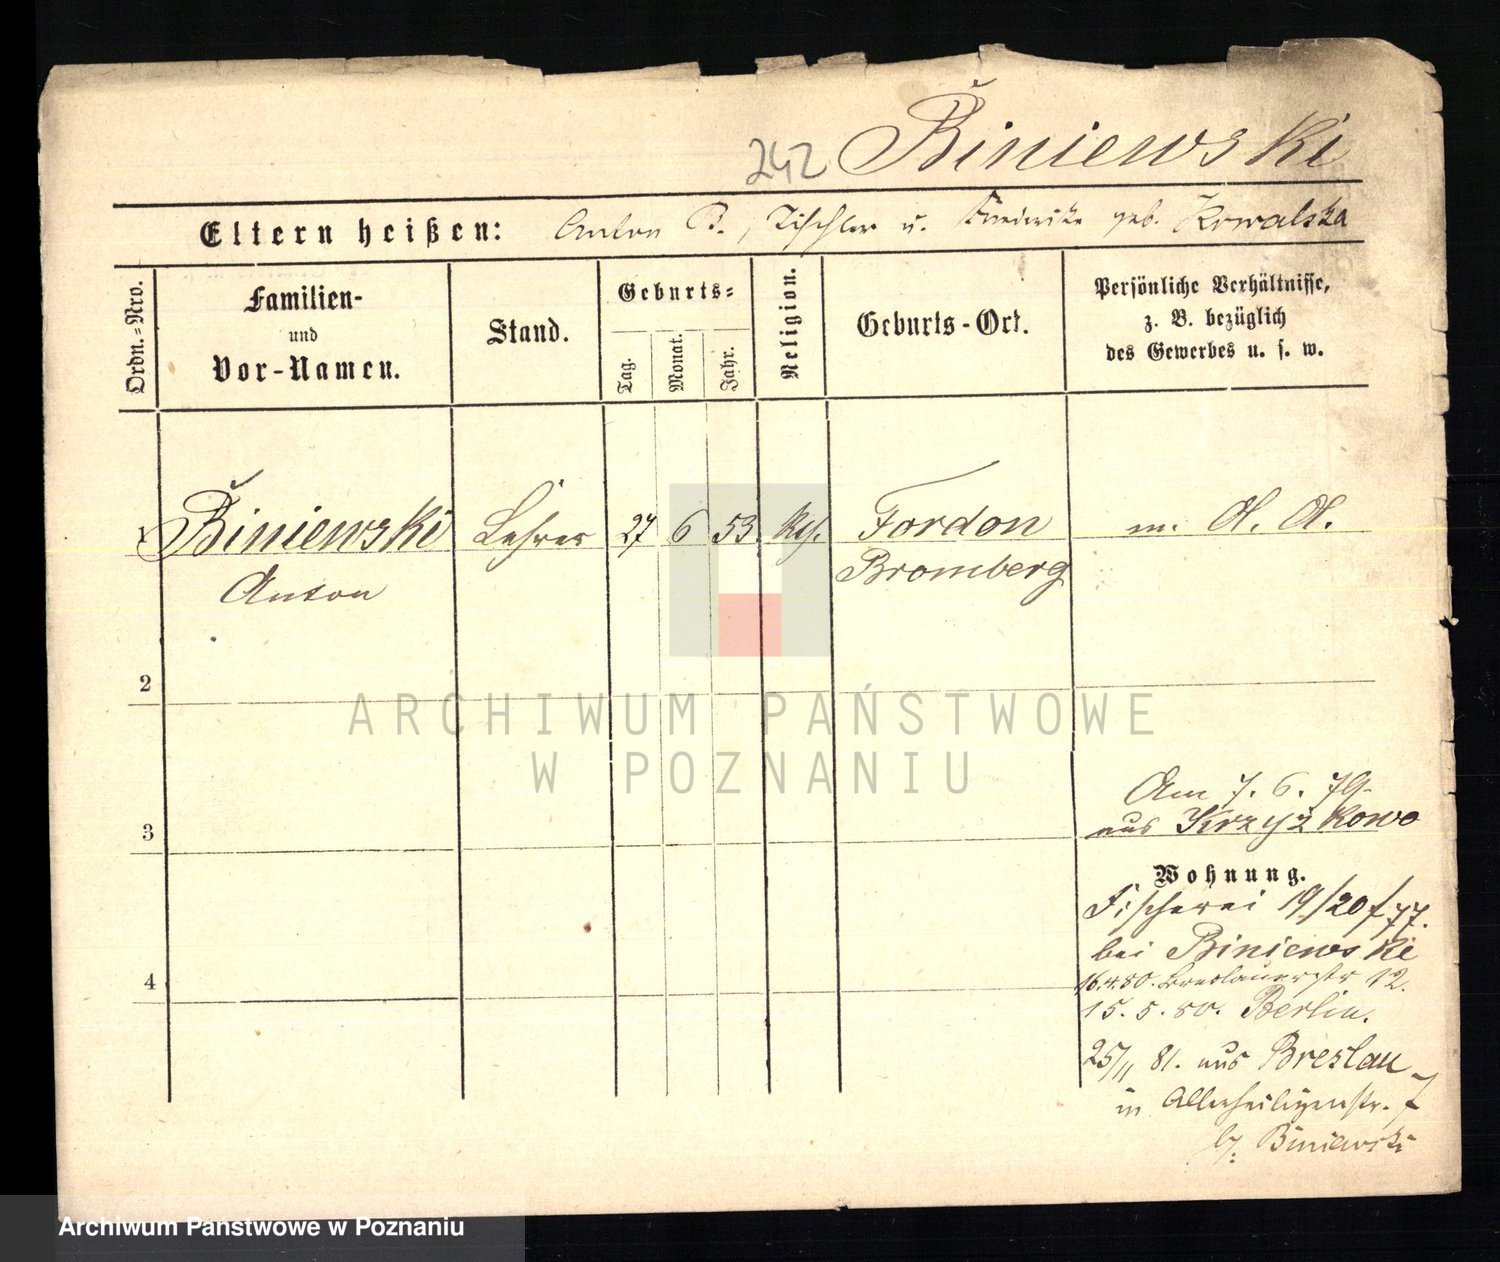 242 Biniewski
Eltern heißen: Anton B., Tischler u. Friederike geb. Kowalska
Ordn.-Nro.
Familien-
und
Vor-Namen.
Stand.
Geburts-
Tag.
Monat.
Jahr.
Religion.
Geburts-Ort.
Persönliche Verhältnisse,
z. B. bezüglich
des Gewerbes u. s. w.
1 Biniewski Lehrer 27 6 53. Fordon m.
Anton Bromberg
2
ARCHIWUM PAŃSTWOWE
W POZNANIU
Am 7. 6. 79.
3 aus Krzyżkowo
Wohnung.
Fischerei 19/20
bei Biniewski
4 16.4.80. Breslauerstr 12.
15. 5. 80. Berlin.
25/11 81. aus Breslau
in Allerheiligenstr. 7
by. Biniewski
Archiwum Państwowe w Poznaniu